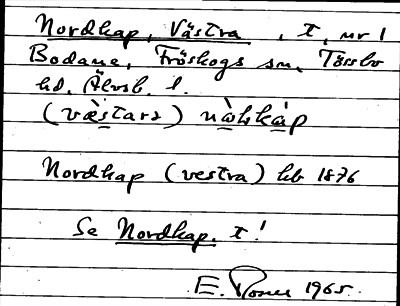 Nordkap, Västra, t, nr 1
Bodane, Fröskogs sn, Tössbo
hd, Älvsb. l.
(væ̀starə) nɷ̀ḷkáp
Nordkap (vestra) hb 1876
Se Nordkap, t!
E. 1965.